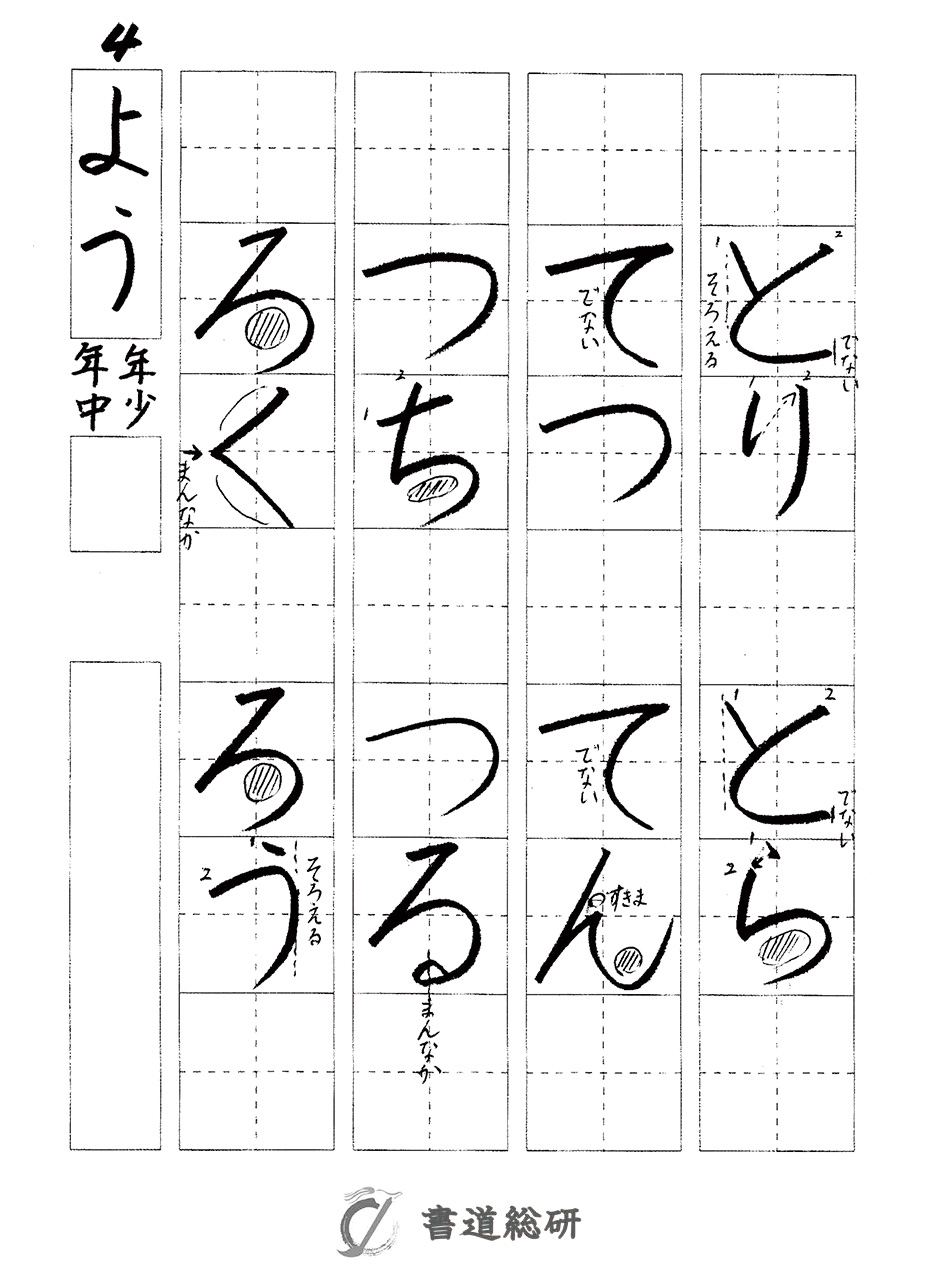 とり
とら
1
2
そろえる
でない
1
2
1
2
でない
1
2
てつ
てん
でない
でない
すきま
つち
つる
1
2
まんなか
ろく
ろう
まんなか
1
2
そろえる
4
よう
年少
年中
書道総研